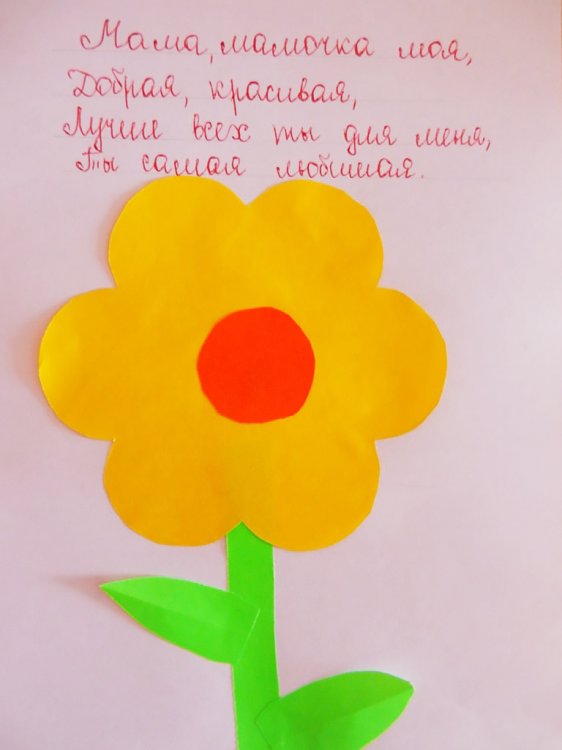 Мама, мамочка моя,
Добрая, красивая,
Лучше всех ты для меня,
Ты самая любимая.